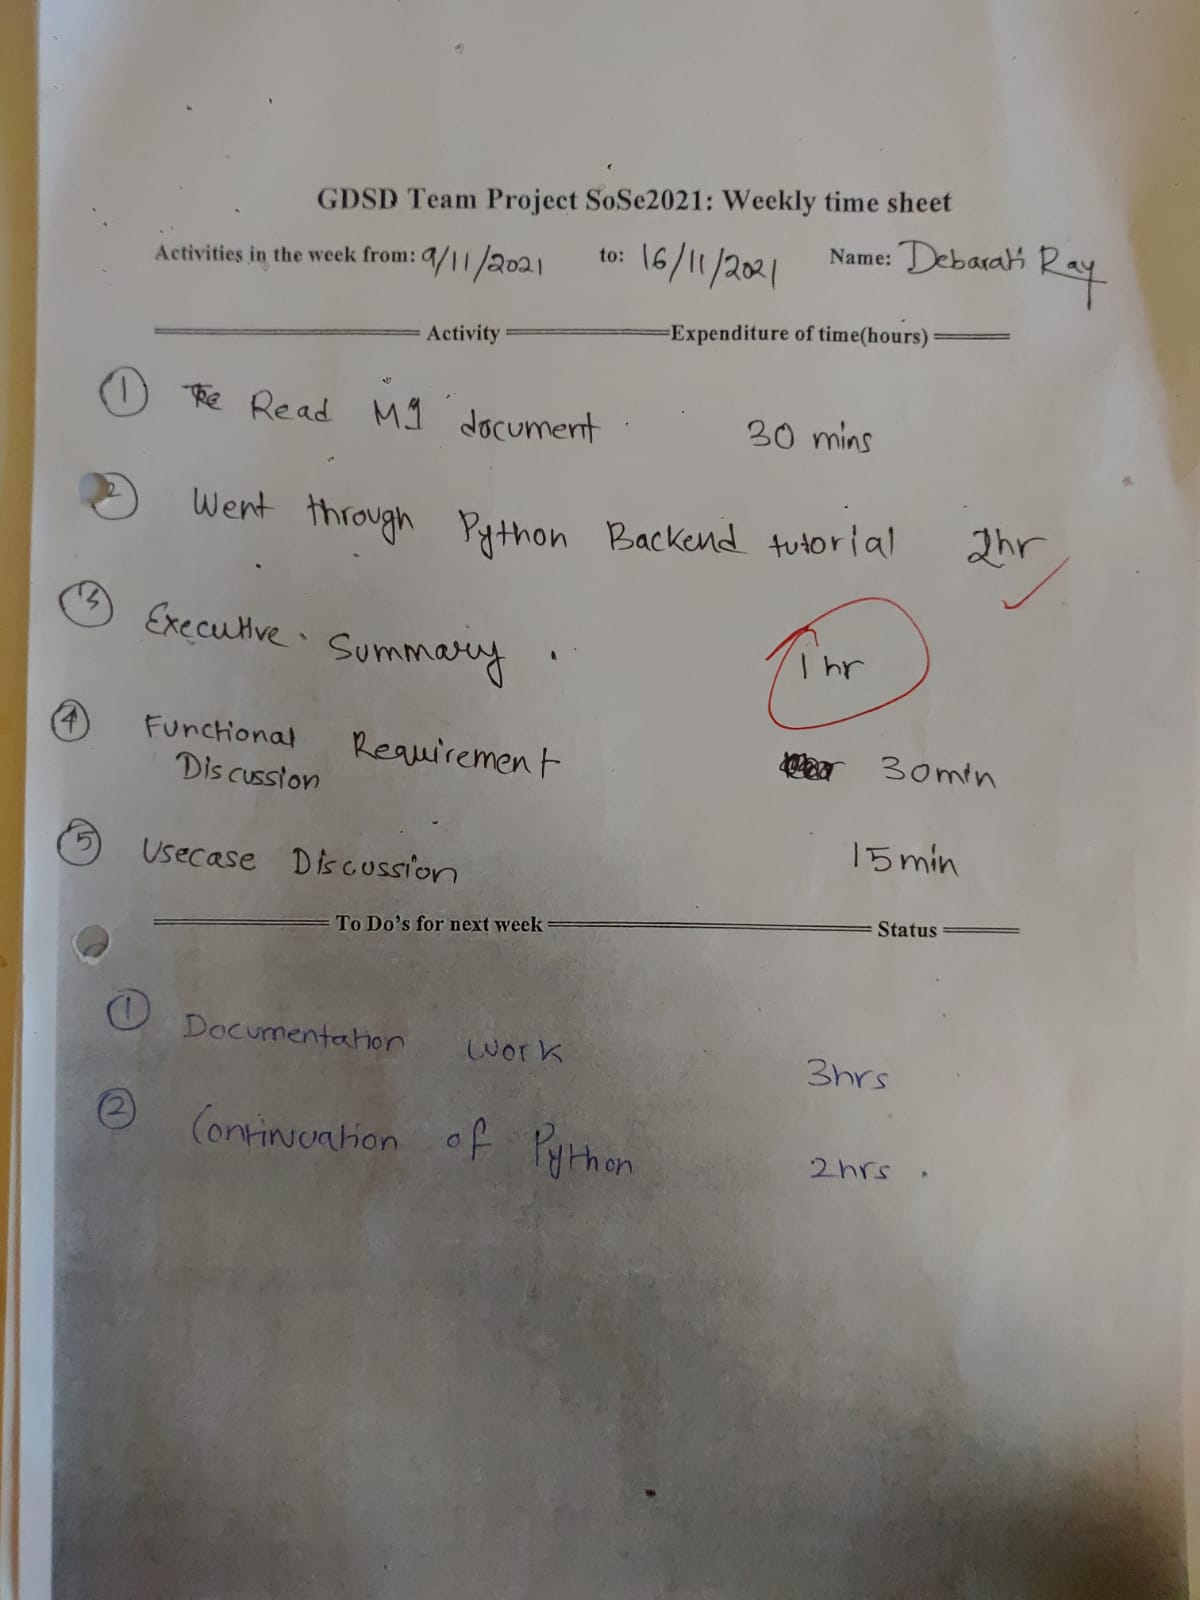 GDSD Team Project SoSe2021: Weekly time sheet
Activities in the week from: 9/11/2021 to: 16/11/2021 Name: Debarati Ray
Activity Expenditure of time(hours)
① Read M1 document 30 mins
② Went through Python Backend tutorial 2hr
③ Executive Summary. 1 hr
④ Functional Requirement 30min
Discussion
⑤ Usecase Discussion 15min
To Do's for next week Status
① Documentation work 3hrs
② Continuation of Python 2hrs.